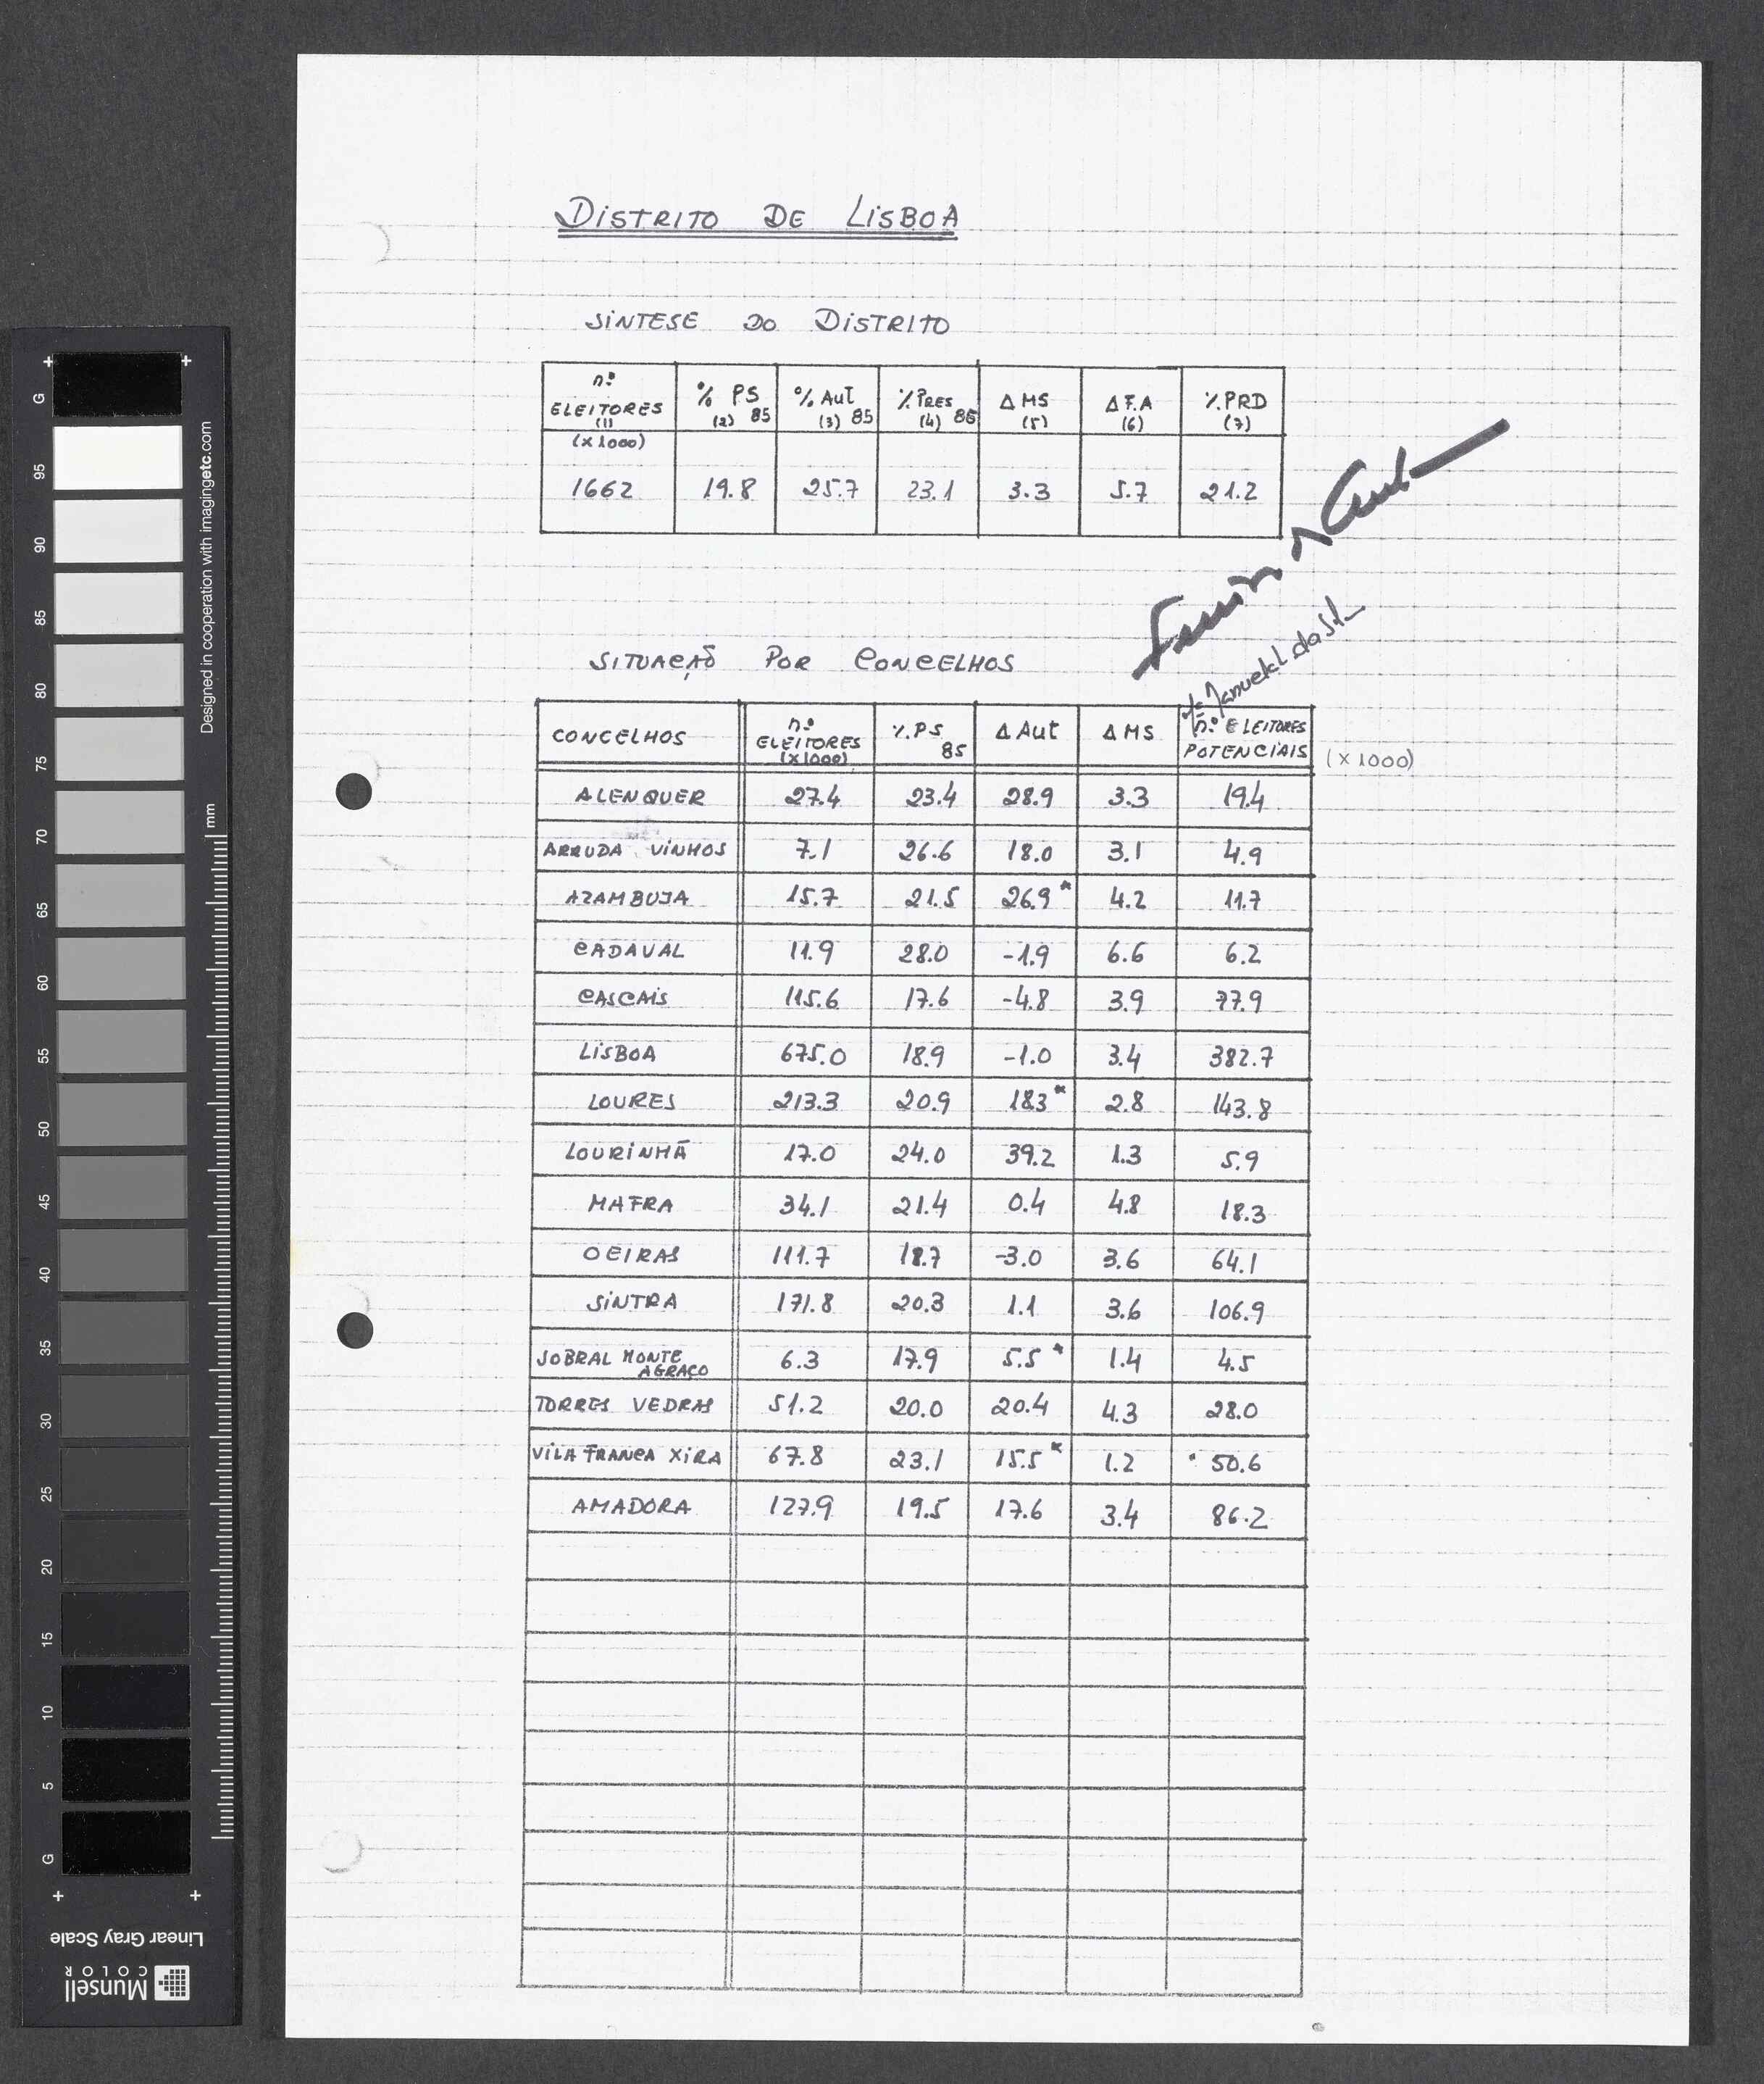 DISTRITO DE LISBOA
SINTESE DO DISTRITO
n.º ELEITORES (1) % PS (2) 85 % Aut (3) 85 % PRES (4) 86 Δ MS (5) Δ F.A (6) % PRD (7)
(x 1000)
1662 19.8 25.7 23.1 3.3 5.7 21.2
Manuel da
SITUAÇÃO POR CONCELHOS
CONCELHOS n.º ELEITORES (x1000) % PS 85 Δ Aut Δ MS n.º ELEITORES POTENCIAIS (x 1000)
ALENQUER 27.4 23.4 28.9 3.3 19.4
ARRUDA VINHOS 7.1 26.6 18.0 3.1 4.9
AZAMBUJA 15.7 21.5 26.9* 4.2 11.7
CADAVAL 11.9 28.0 -1.9 6.6 6.2
CASCAIS 115.6 17.6 -4.8 3.9 77.9
LISBOA 675.0 18.9 -1.0 3.4 382.7
LOURES 213.3 20.9 18.3* 2.8 143.8
LOURINHÃ 17.0 24.0 39.2 1.3 5.9
MAFRA 34.1 21.4 0.4 4.8 18.3
OEIRAS 111.7 18.7 -3.0 3.6 64.1
SINTRA 171.8 20.3 1.1 3.6 106.9
SOBRAL MONTE AGRAÇO 6.3 17.9 5.5* 1.4 4.5
TORRES VEDRAS 51.2 20.0 20.4 4.3 28.0
VILA FRANCA XIRA 67.8 23.1 15.5* 1.2 50.6
AMADORA 127.9 19.5 17.6 3.4 86.2
G 95 90 85 80 75 70 65 60 55 50 45 40 35 30 25 20 15 10 5 G
Designed in cooperation with imagingetc.com
mm
Linear Gray Scale
Munsell
COLOR